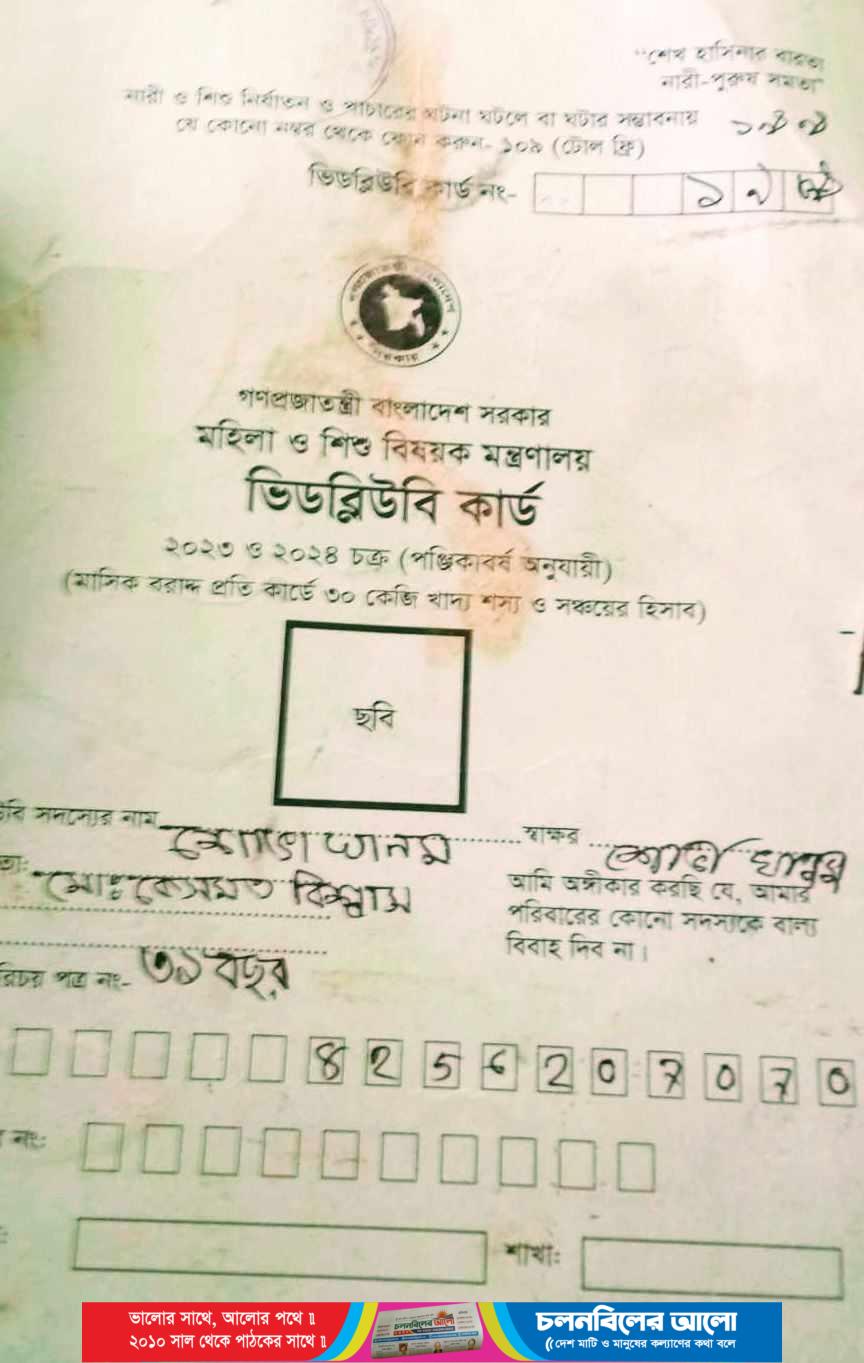 "শেখ হাসিনার বারতা
নারী-পুরুষ সমতা"
নারী ও শিশু নির্যাতন ও পাচারের ঘটনা ঘটলে বা ঘটার সম্ভাবনায়
যে কোনো নম্বর থেকে ফোন করুন- ১০৯ (টোল ফ্রি)
ভিডব্লিউবি কার্ড নং-
গণপ্রজাতন্ত্রী বাংলাদেশ
সরকার
গণপ্রজাতন্ত্রী বাংলাদেশ সরকার
মহিলা ও শিশু বিষয়ক মন্ত্রণালয়
ভিডব্লিউবি কার্ড
২০২৩ ও ২০২৪ চক্র (পঞ্জিকাবর্ষ অনুযায়ী)
(মাসিক বরাদ্দ প্রতি কার্ডে ৩০ কেজি খাদ্য শস্য ও সঞ্চয়ের হিসাব)
ছবি
সদস্যের নাম
স্বাক্ষর
মোঃ কেসমত বিশ্বাস
আমি অঙ্গীকার করছি যে, আমার
পরিবারের কোনো সদস্যকে বাল্য
বিবাহ দিব না।
পত্র নং- ৩১ বছর
8256207070
নং:
শাখা:
ভালোর সাথে, আলোর পথে ॥
২০১০ সাল থেকে পাঠকের সাথে ॥
চলনবিলের আলো
চলনবিলের আলো
দেশ মাটি ও মানুষের কল্যাণের কথা বলে